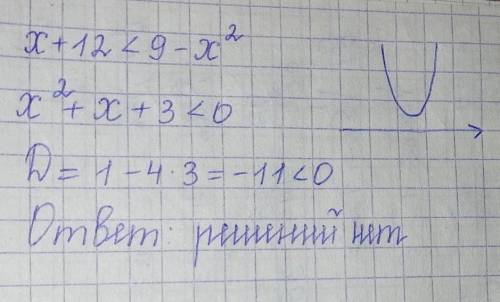 x+12<9-x²
x²+x+3<0
D=1-4·3=-11<0
Ответ: решений нет